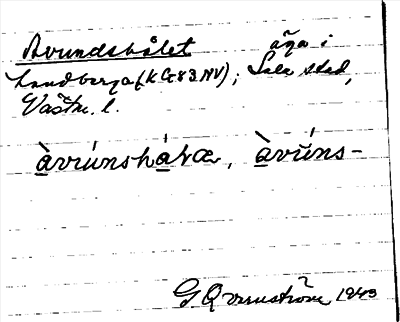 Avundshålet äga i
Landberga (KG 83 NV); Sala stad,
Västm. l.
àvrúnshálæ, àvrúns-
G Qvarnström 1943